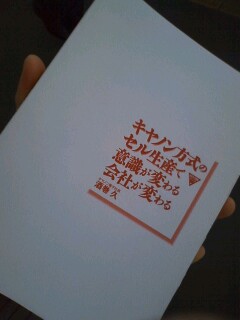 キヤノン方式の
セル生産で
意識が変わる
会社が変わる
酒巻 久